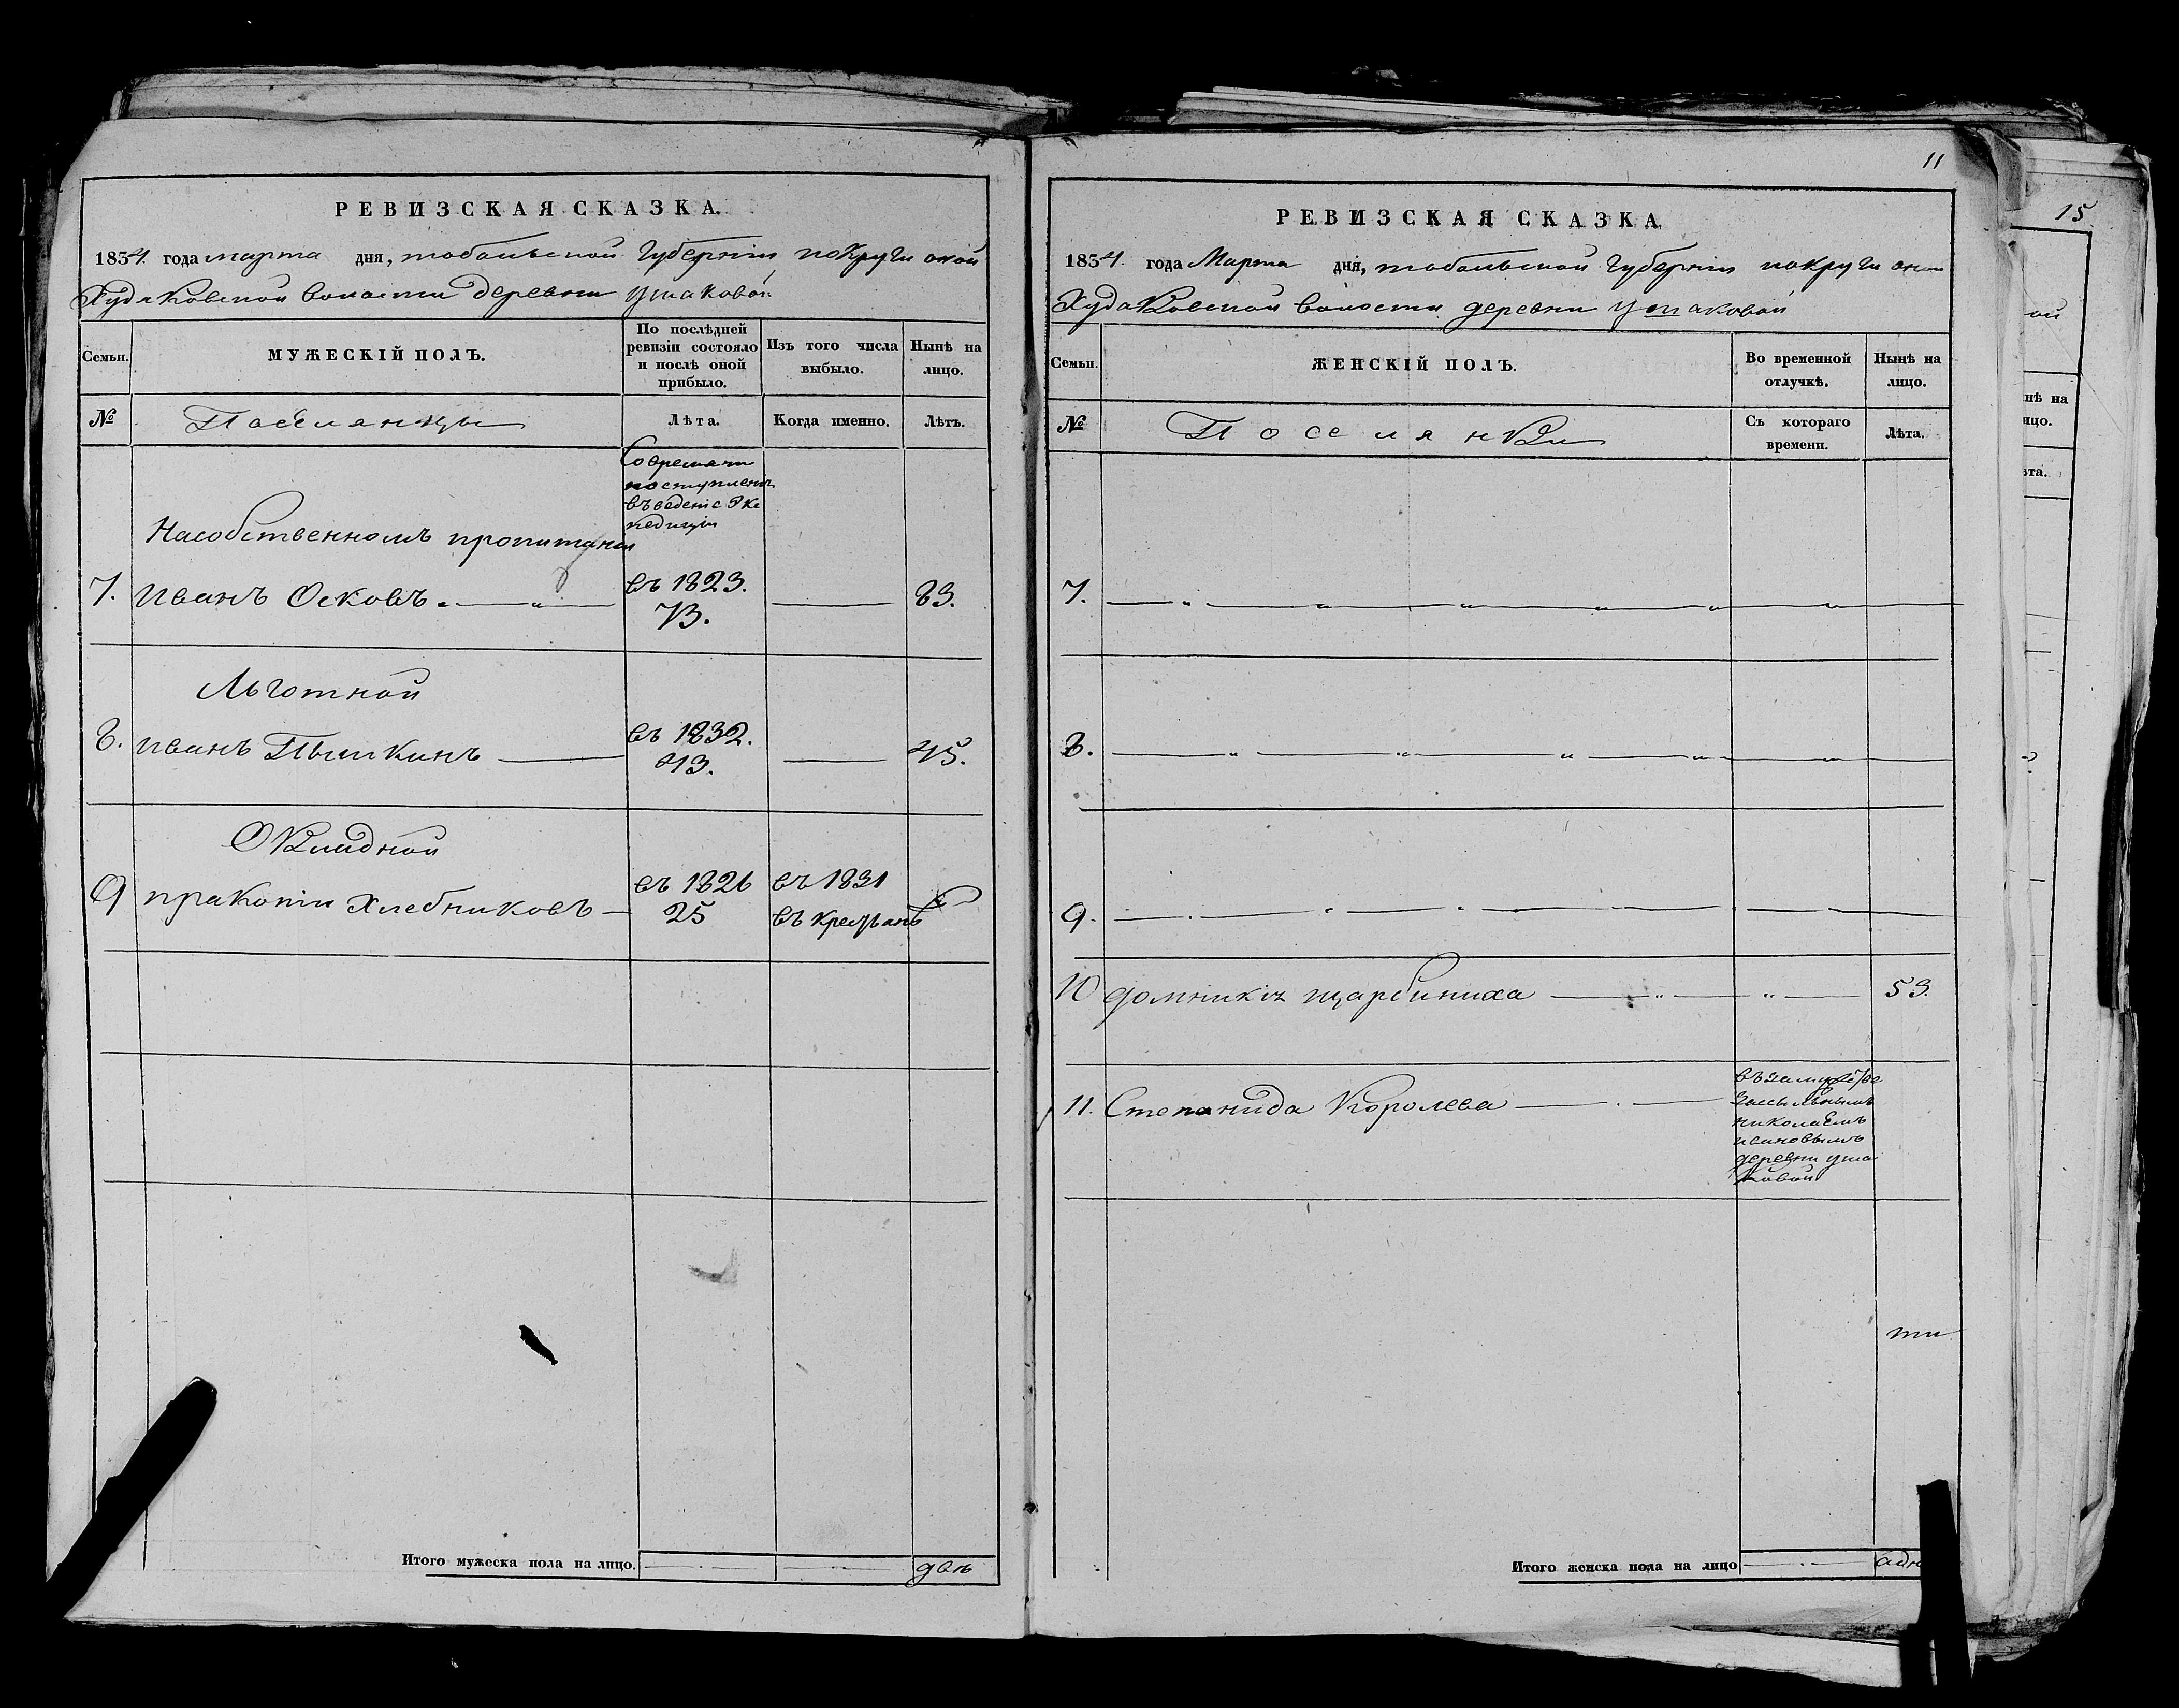 РЕВИЗСКАЯ СКАЗКА.
1834. года марта дня, тобольской Губерніи покруги оной
Худяковской волости деревни ушаковой
Семьи. МУЖЕСКІЙ ПОЛЪ. По послѣдней ревизіи состояло и послѣ оной прибыло. Изъ того числа выбыло. Нынѣ на лицо.
№ Поселянцы Лѣта. Когда именно. Лѣтъ.
Совремяни
поступленія
въведеніе Экс
педиціи
Насобственномъ пропитаніи
7. Иванъ Осковъ въ 1823. 73. 83.
Льготной
8. иванъ Пышкинъ въ 1832. 43. 45.
Окладной
9 пракопіи Хлебниковъ въ 1826 25 въ 1831 въ крестьянъ
Итого мужеска пола на лицо. два
11
РЕВИЗСКАЯ СКАЗКА
1834. года Марта дня, тобольской Губерніи покруги оной
Худяковской волости деревни ушаковой
Семьи. ЖЕНСКІЙ ПОЛЪ. Во временной отлучкѣ. Нынѣ на лицо.
№ Поселянки Съ котораго времени. Лѣта.
7.
8.
9.
10 домникія щарбиниха 53.
11. Степанида Королева
зассыльнымъ
николаемъ
ивановымъ
деревни уша
ковой
Итого женска пола на лицо
15